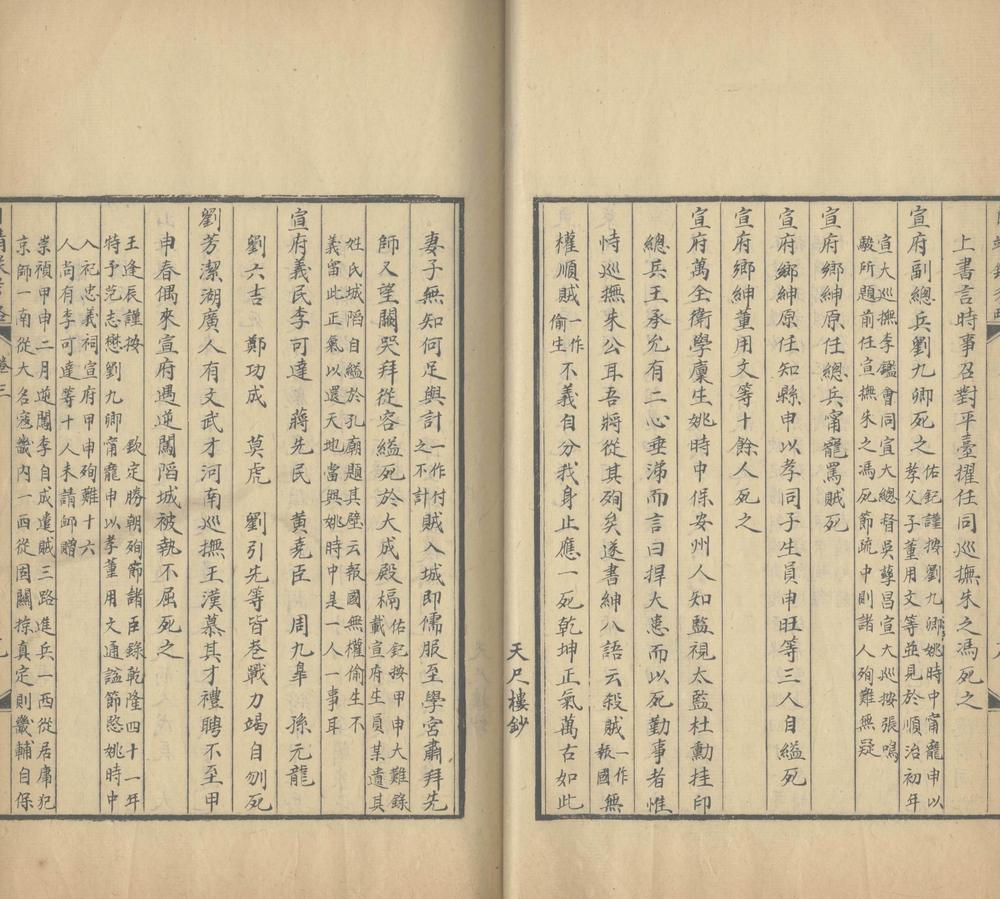 上書言時事召對平臺擢任同巡撫朱之馮死之
宣府副總兵劉九卿死之
佑釲謹按劉九卿姚時中甯寵申以
孝父子董用文等並見於順治初年
宣大巡撫李鑑會同宣大總督吳孳昌宣大巡按張鳴
駿所題前任宣撫朱之馮死節疏中則諸人殉難無疑
宣府鄉紳原任總兵甯寵罵賊死
宣府鄉紳原任知縣申以孝同子生員申旺等三人自縊死
宣府鄉紳董用文等十餘人死之
宣府萬全衛學廩生姚時中保安州人知監視太監杜勳挂印
總兵王承允有二心垂涕而言曰捍大患而以死勤事者惟
恃巡撫朱公耳吾將從其殉矣遂書紳八語云殺賊
一作
報國
無
權順賊
一作
偷生
不義自分我身止應一死乾坤正氣萬古如此
天尺樓鈔
妻子無知何足與計
一作付
之不計
賊入城即儒服至學宮肅拜先
師又望闕哭拜從容縊死於大成殿槅
佑釲按甲申大難錄
載宣府生員某遺其
姓氏城陷自縊於孔廟題其壁云報國無權偷生不
義留此正氣以還天地當與姚時中是一人一事耳
宣府義民李可達 蔣先民 黃堯臣 周九皐 孫元龍
劉六吉 鄭功成 莫虎 劉引先等皆巷戰力竭自刎死
劉芳潔湖廣人有文武才河南巡撫王漢慕其才禮聘不至甲
申春偶來宣府遇逆闖陷城被執不屈死之
王逢辰謹按 欽定勝朝殉節諸臣錄乾隆四十一年
特予范志懋劉九卿甯寵申以孝董用文通謚節愍姚時中
入祀忠義祠宣府甲申殉難十六
人尚有李可達等十人未請卹贈
崇禎甲申二月逆闖李自成遣賊三路進兵一西從居庸犯
京師一南從大名寇畿內一西從固關掠真定則畿輔自保
卷三